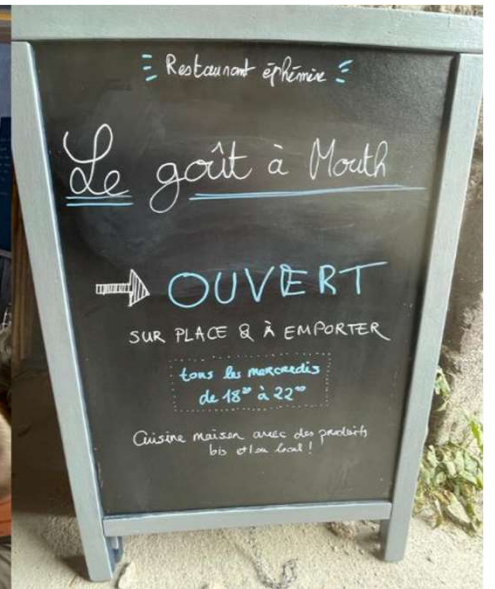 Restaurant éphémère
Le goût à Mouth
OUVERT
SUR PLACE & À EMPORTER
tous les mercredis
de 18³⁰ à 22⁰⁰
Cuisine maison avec des produits
bio et/ou local !